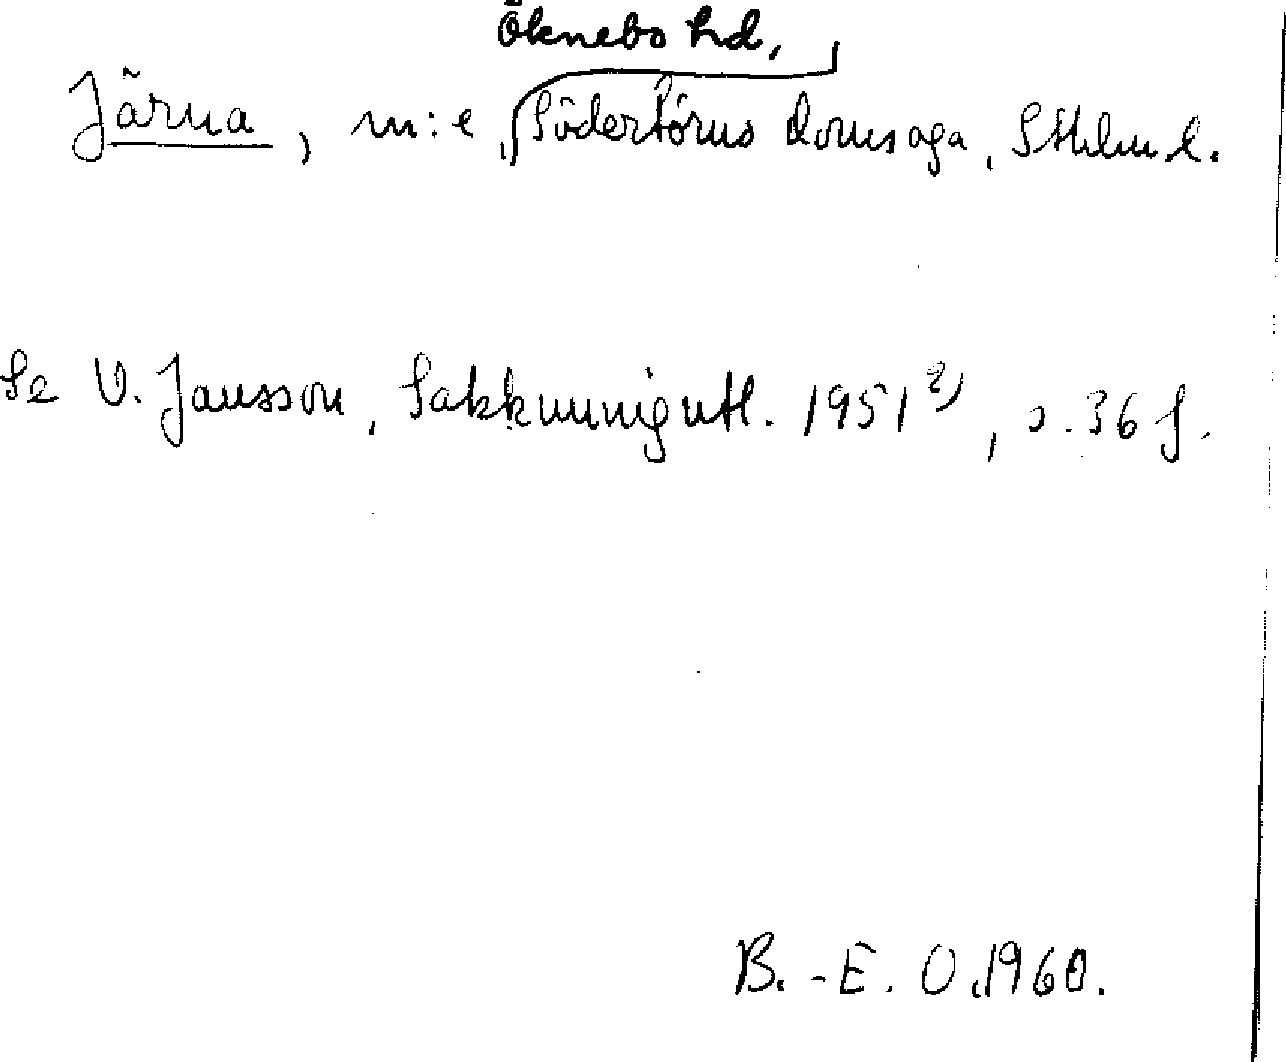 Öknebo hd,
Järna, m:e, Södertörns domsaga, Sthlm l.
Se V. Jansson, Sakkunnigutl. 1951 2), s. 36 f.
B.-E. O. 1960.